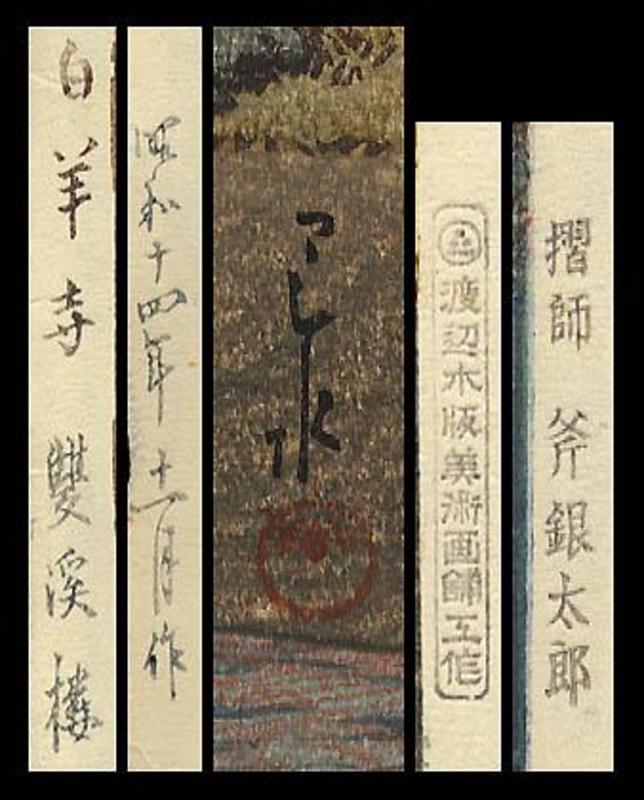 白羊寺 雙溪樓
昭和十四年十一月作
巴水
渡辺木版美術画舗工作
摺師 斧銀太郎